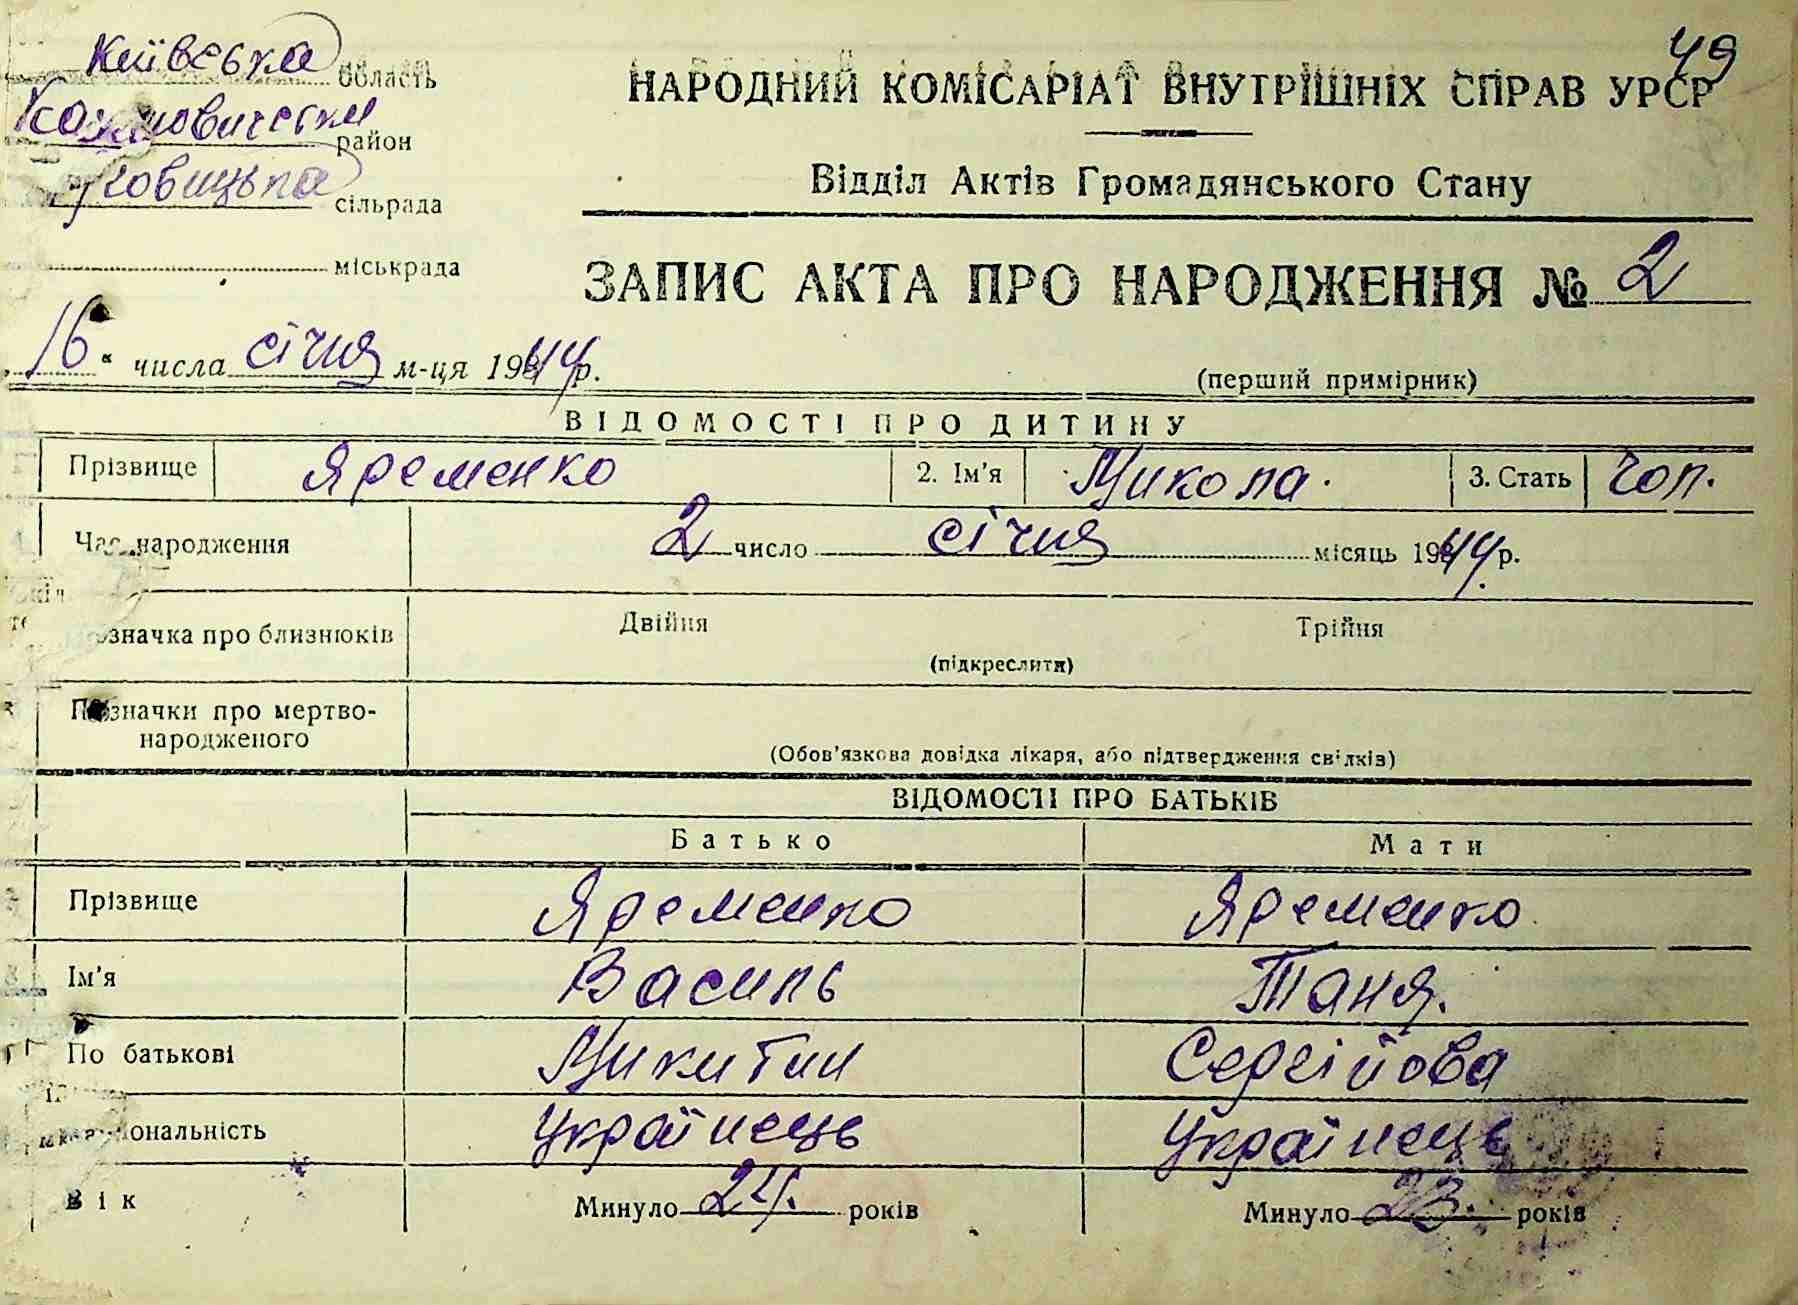 49
Київська область
НАРОДНИЙ КОМІСАРІАТ ВНУТРІШНІХ СПРАВ УРСР
Кагановичський район
Відділ Актів Громадянського Стану
сільрада
міськрада
ЗАПИС АКТА ПРО НАРОДЖЕННЯ № 2
„16“ числа січня м-ця 1944 р.
(перший примірник)
ВІДОМОСТІ ПРО ДИТИНУ
Прізвище Яременко 2. Ім'я Микола. 3. Стать чол.
Час народження 2 число січня місяць 1944 р.
Позначка про близнюків Двійня Трійня
(підкреслити)
Позначки про мертво-
народженого
(Обов'язкова довідка лікаря, або підтвердження свідків)
ВІДОМОСТІ ПРО БАТЬКІВ
Батько Мати
Прізвище Яременко Яременко
Ім'я Василь Таня.
По батькові Микитин Сергійова
Національність Українець Українець
Вік Минуло 24. років Минуло 23. років